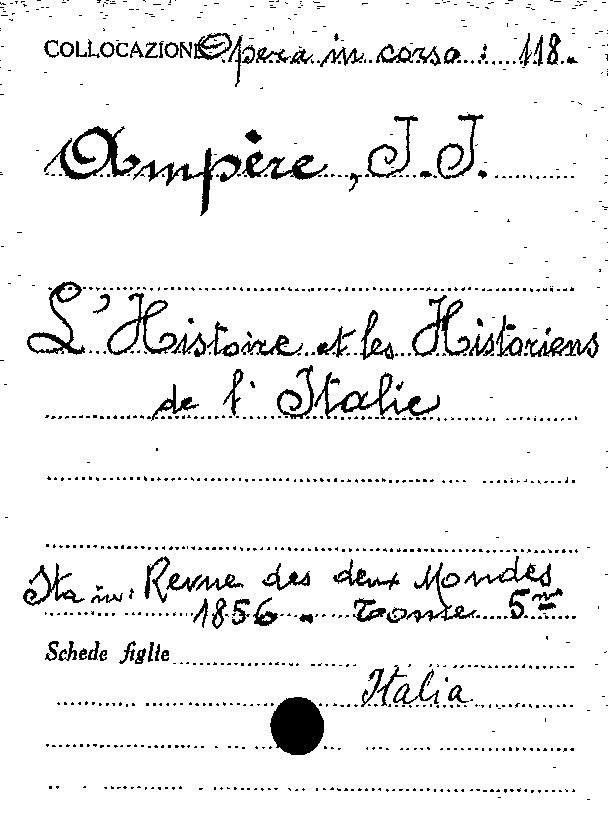 COLLOCAZIONE Opera in corso : 118.
Ampère, J. J.
L'Histoire et les Historiens
de l'Italie
Sta in: Revue des deux Mondes
1856 - Tome 5me
Schede figlie
Italia